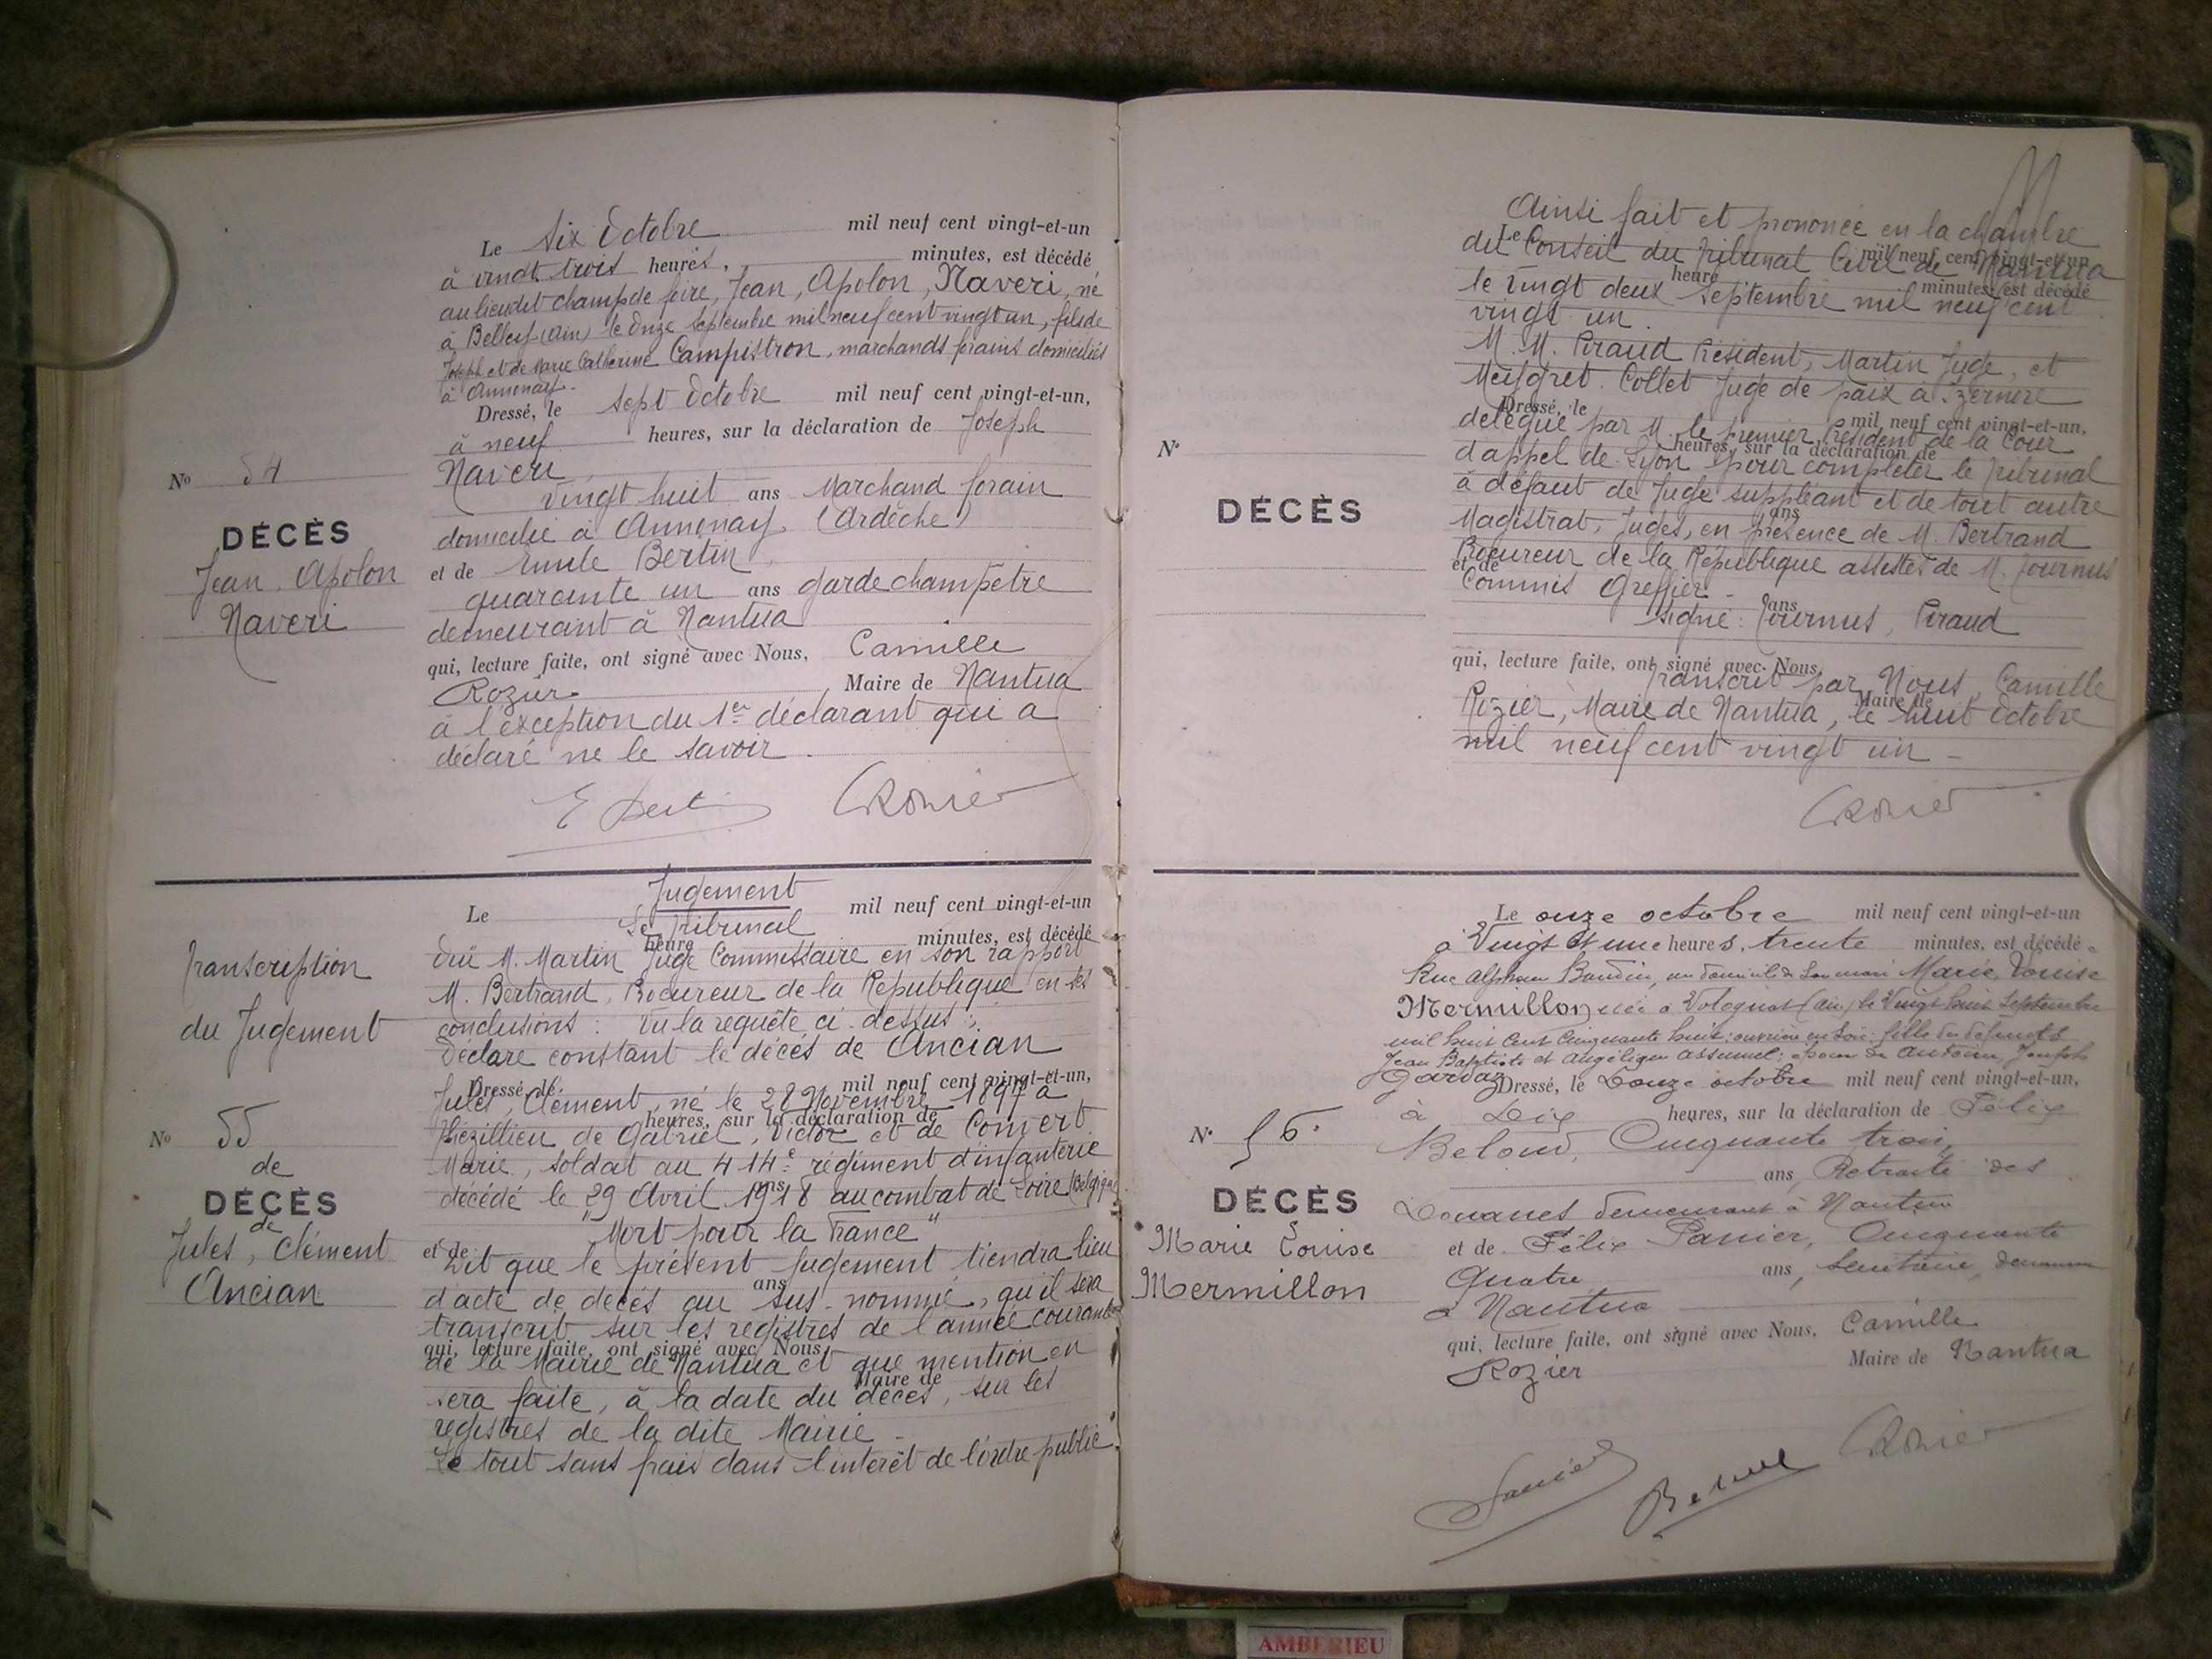 Le six Octobre mil neuf cent vingt-et-un
à vingt trois heures, minutes, est décédé
au lieu dit champ de foire, Jean, Apolon, Naveri, né
à Belley (Ain) le onze Septembre mil neuf cent vingt un, fils de
Joseph et de Marie Catherine Campistron, marchands forains domiciliés
à Annonay.
Dressé, le sept Octobre mil neuf cent vingt-et-un,
à neuf heures, sur la déclaration de Joseph
Naveri
vingt huit ans Marchand forain
domicilié à Annonay (Ardèche)
et de Emile Bertin
quarante un ans garde champêtre
demeurant à Nantua
qui, lecture faite, ont signé avec Nous, Camille
Rozier Maire de Nantua
à l'exception du 1er déclarant qui a
déclaré ne le savoir.
No 54
DÉCÈS
Jean, Apolon
Naveri
E Bertin CRozier
Transcription
du Jugement
No 55
de
DÉCÈS
de
Jules, Clément
Ancian
Jugement
Le Le Tribunal mil neuf cent vingt-et-un
heure minutes, est décédé
Ouï M. Martin Juge Commissaire en son rapport
M. Bertrand, Procureur de la République en ses
conclusions : Vu la requête ci-dessus ;
Déclare constant le décès de Ancian
Dressé, le mil neuf cent vingt-et-un,
Jules, Clément, né le 28 Novembre 1897 à
heures, sur la déclaration de
de Gabriel, Victor et de Convert
Marie, soldat au 414e régiment d'infanterie
ans
décédé le 29 Avril 1918 au combat de Loire (Belgique)
"Mort pour la France"
et de
Dit que le présent jugement tiendra lieu
ans
d'acte de décès au sus-nommé, qu'il sera
transcrit sur les registres de l'année courante
qui, lecture faite, ont signé avec Nous,
de la Mairie de Nantua et que mention en
Maire de
sera faite, à la date du décès, sur les
registres de la dite Mairie -
Le tout sans frais dans l'intérêt de l'ordre public.
Ainsi fait et prononcé en la chambre
Le mil neuf cent vingt-et-un
du Conseil du Tribunal Civil de Nantua
heure minutes, est décédé
le vingt deux Septembre mil neuf cent
vingt un.
M. M. Piraud Président, Martin Juge, et
Meifgret-Collet Juge de paix à Izernore
Dressé, le mil neuf cent vingt-et-un,
délégué par M. le Premier Président de la Cour
heures, sur la déclaration de
d'appel de Lyon pour compléter le Tribunal
à défaut de Juge suppléant et de tout autre
ans
Magistrat, Juges, en présence de M. Bertrand
Procureur de la République assistés de M. Tournus
et de
Commis Greffier -
ans
signé : Tournus, Piraud
qui, lecture faite, ont signé avec Nous,
Transcrit par Nous Camille
Maire de
Rozier, Maire de Nantua, le huit Octobre
mil neuf cent vingt un -
CRozier
No
DÉCÈS
Le onze octobre mil neuf cent vingt-et-un
à Vingt et une heures, trente minutes, est décédée
Rue Alphonse Baudin, au domicile de son mari Marie Louise
Mermillon, née à Volognat (Ain) le Vingt huit Septembre
mil huit Cent Cinquante huit ; ouvrière en soie : fille des défunts
Jean Baptiste et Angélique Assumel ; épouse de Antoine, Joseph
Gardaz Dressé, le Douze octobre mil neuf cent vingt-et-un,
à Dix heures, sur la déclaration de Félix
Beloud, Cinquante trois
ans, Retraité des
Douanes demeurant à Nantua
et de Félix Panier, Cinquante
Quatre ans, Secrétaire, demeurant
à Nantua
qui, lecture faite, ont signé avec Nous, Camille
Rozier Maire de Nantua
No 56.
DÉCÈS
Marie Louise
Mermillon
CRozier
AMBERIEU